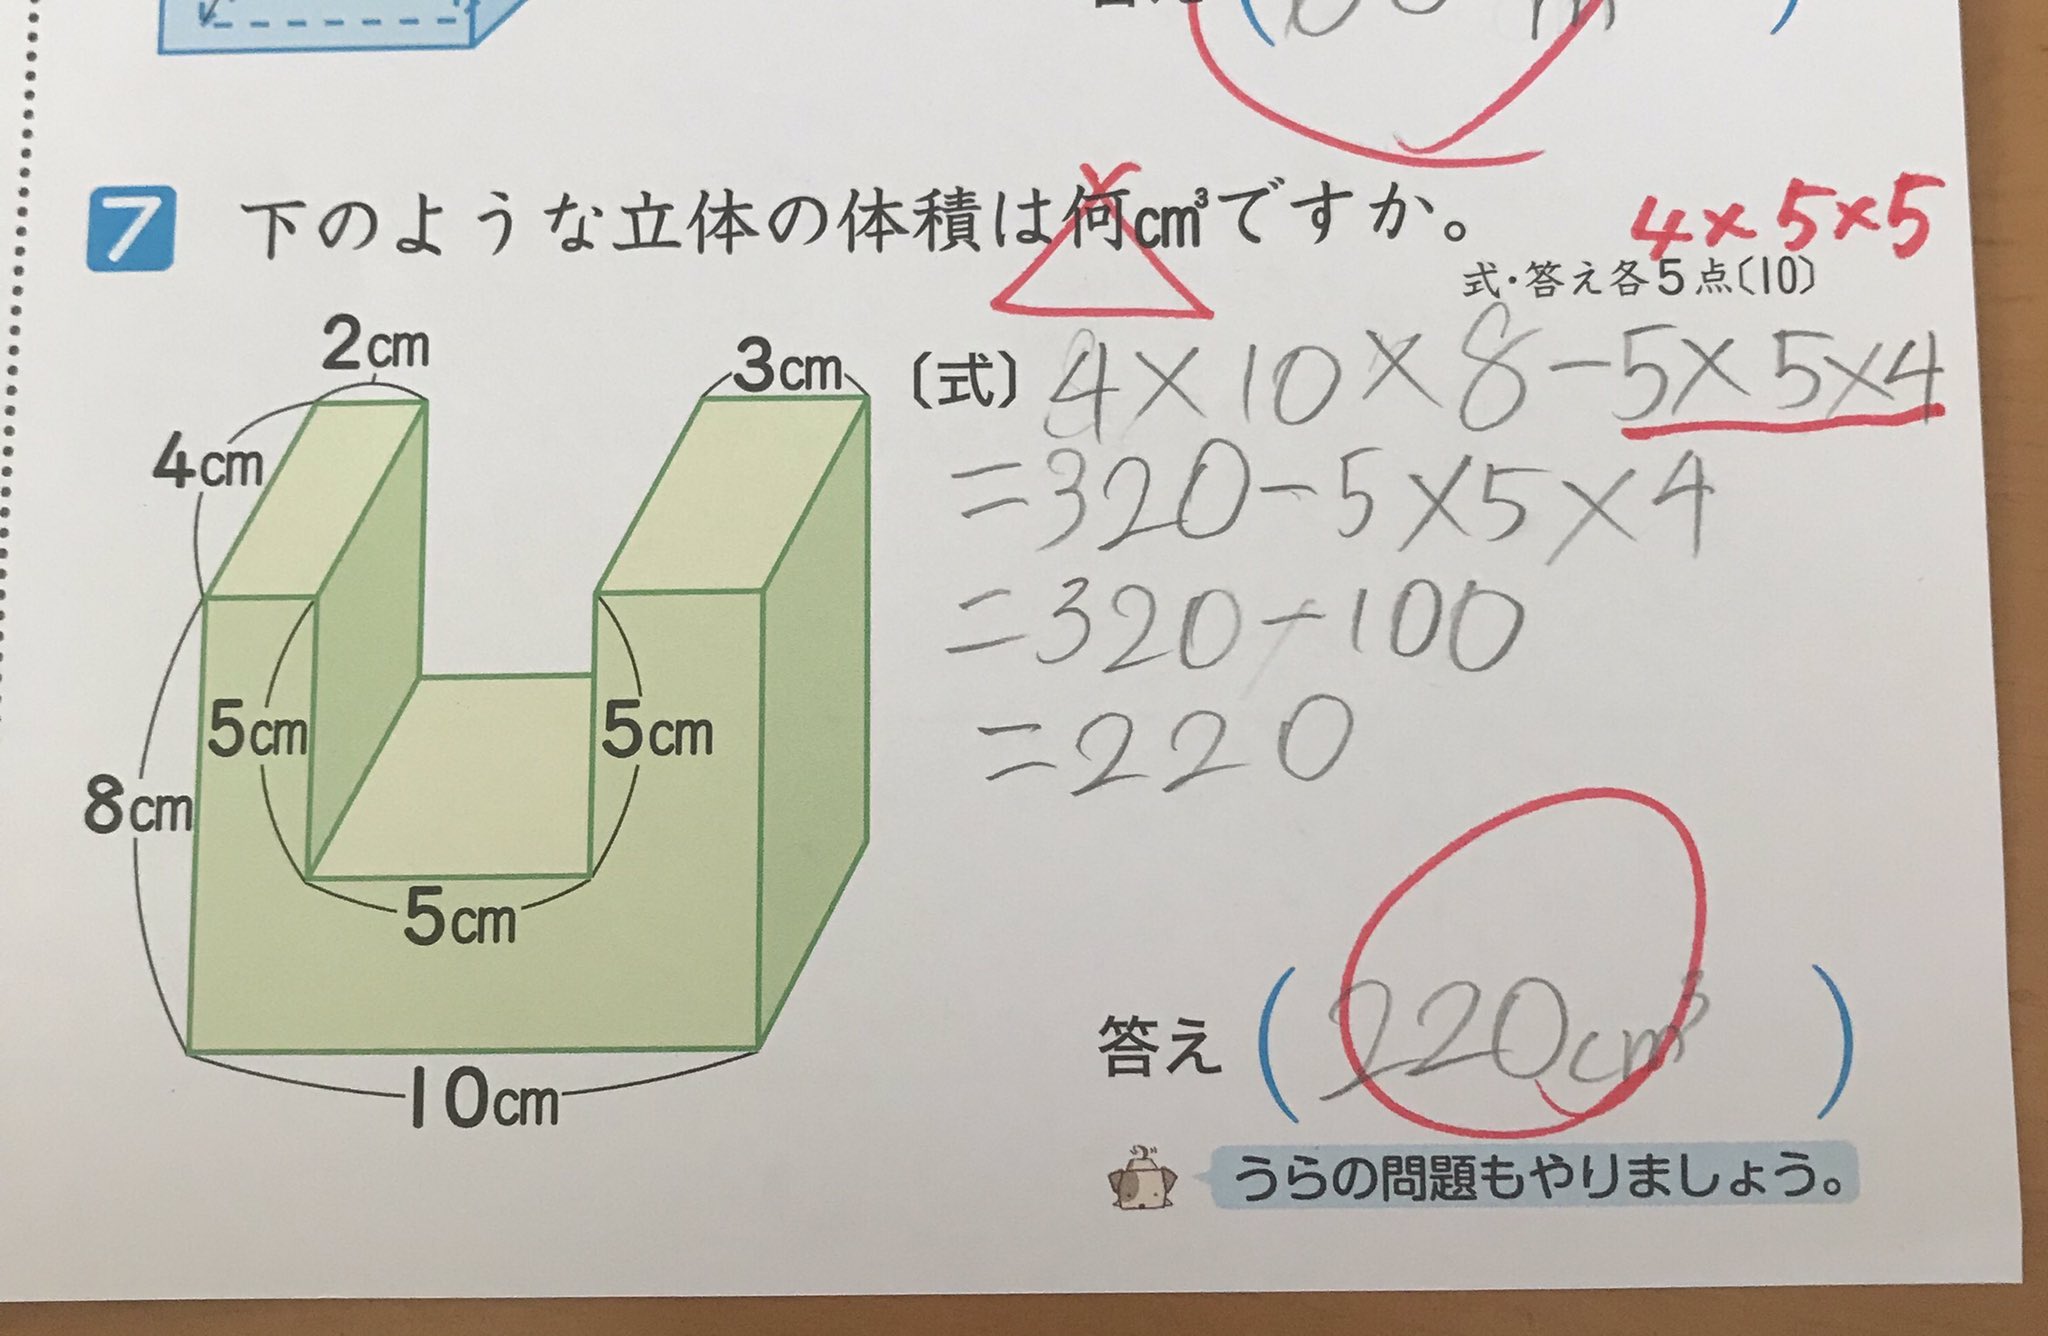 7 下のような立体の体積は何cm³ですか。
4×5×5
式・答え各5点〔10〕
2cm
3cm
4cm
5cm
5cm
8cm
5cm
10cm
〔式〕 4×10×8-5×5×4
=320-5×5×4
=320-100
=220
答え ( 220cm³ )
うらの問題もやりましょう。